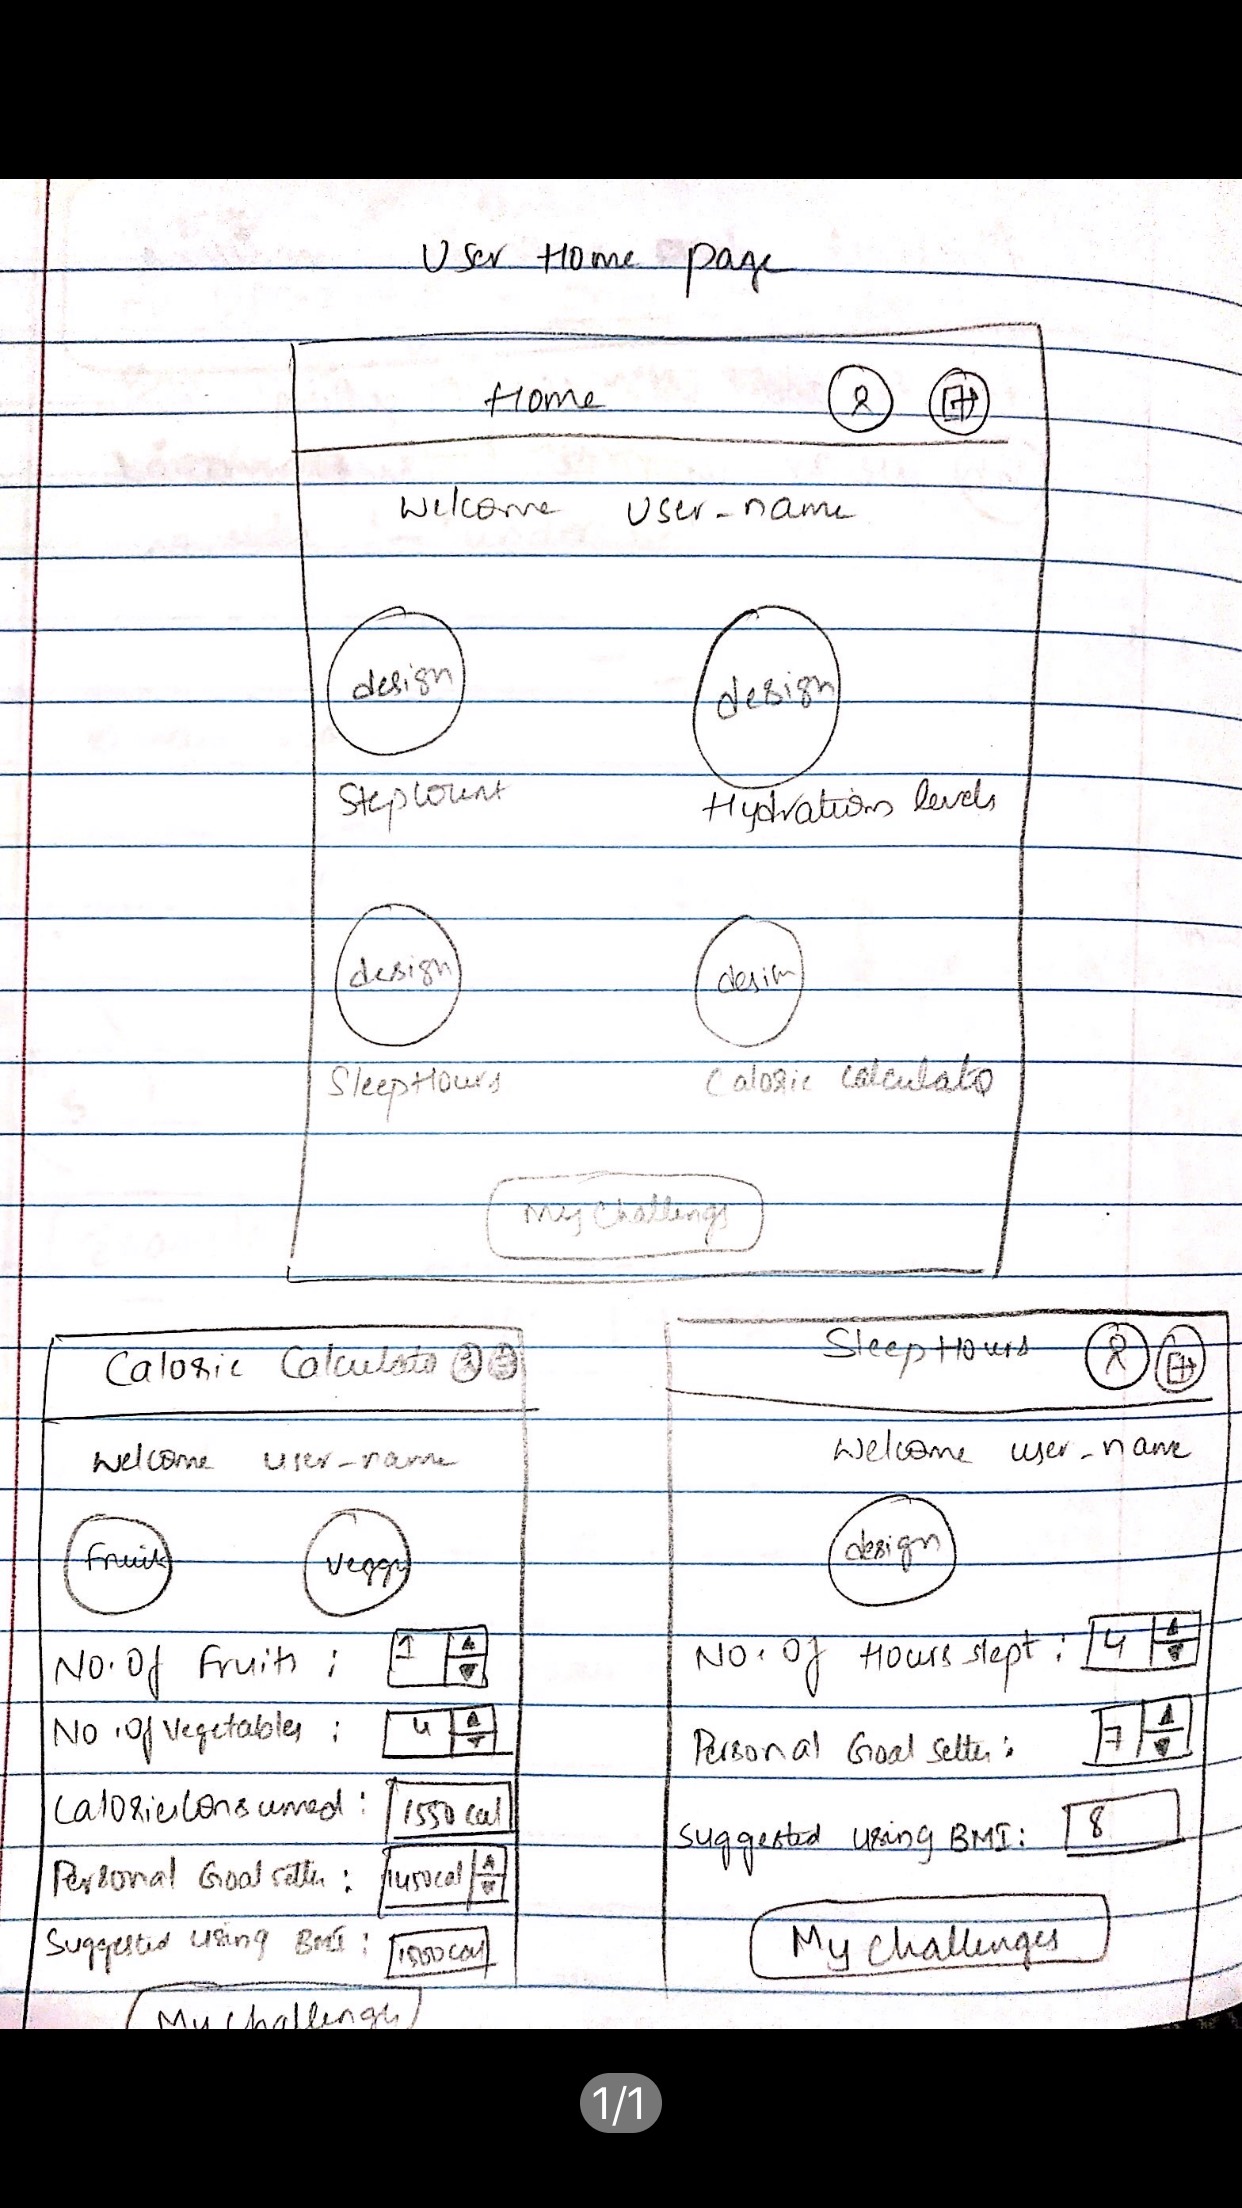 User Home page
Home
Welcome user-name
design
design
Stepcount
Hydrations levels
design
desin
SleepHours
Calorie calculato
My Challengs
Calorie Calculato
Welcome user-name
Fruits
Veggy
No. Of Fruits :
1
No. Of Vegetables :
4
Calories Consumed :
1550 cal
Personal Goal setter :
1450cal
Suggested using BMI :
My Challenges
SleepHours
Welcome user-name
design
No. Of Hours slept :
4
Personal Goal setter :
7
Suggested using BMI :
8
My Challenges
1/1